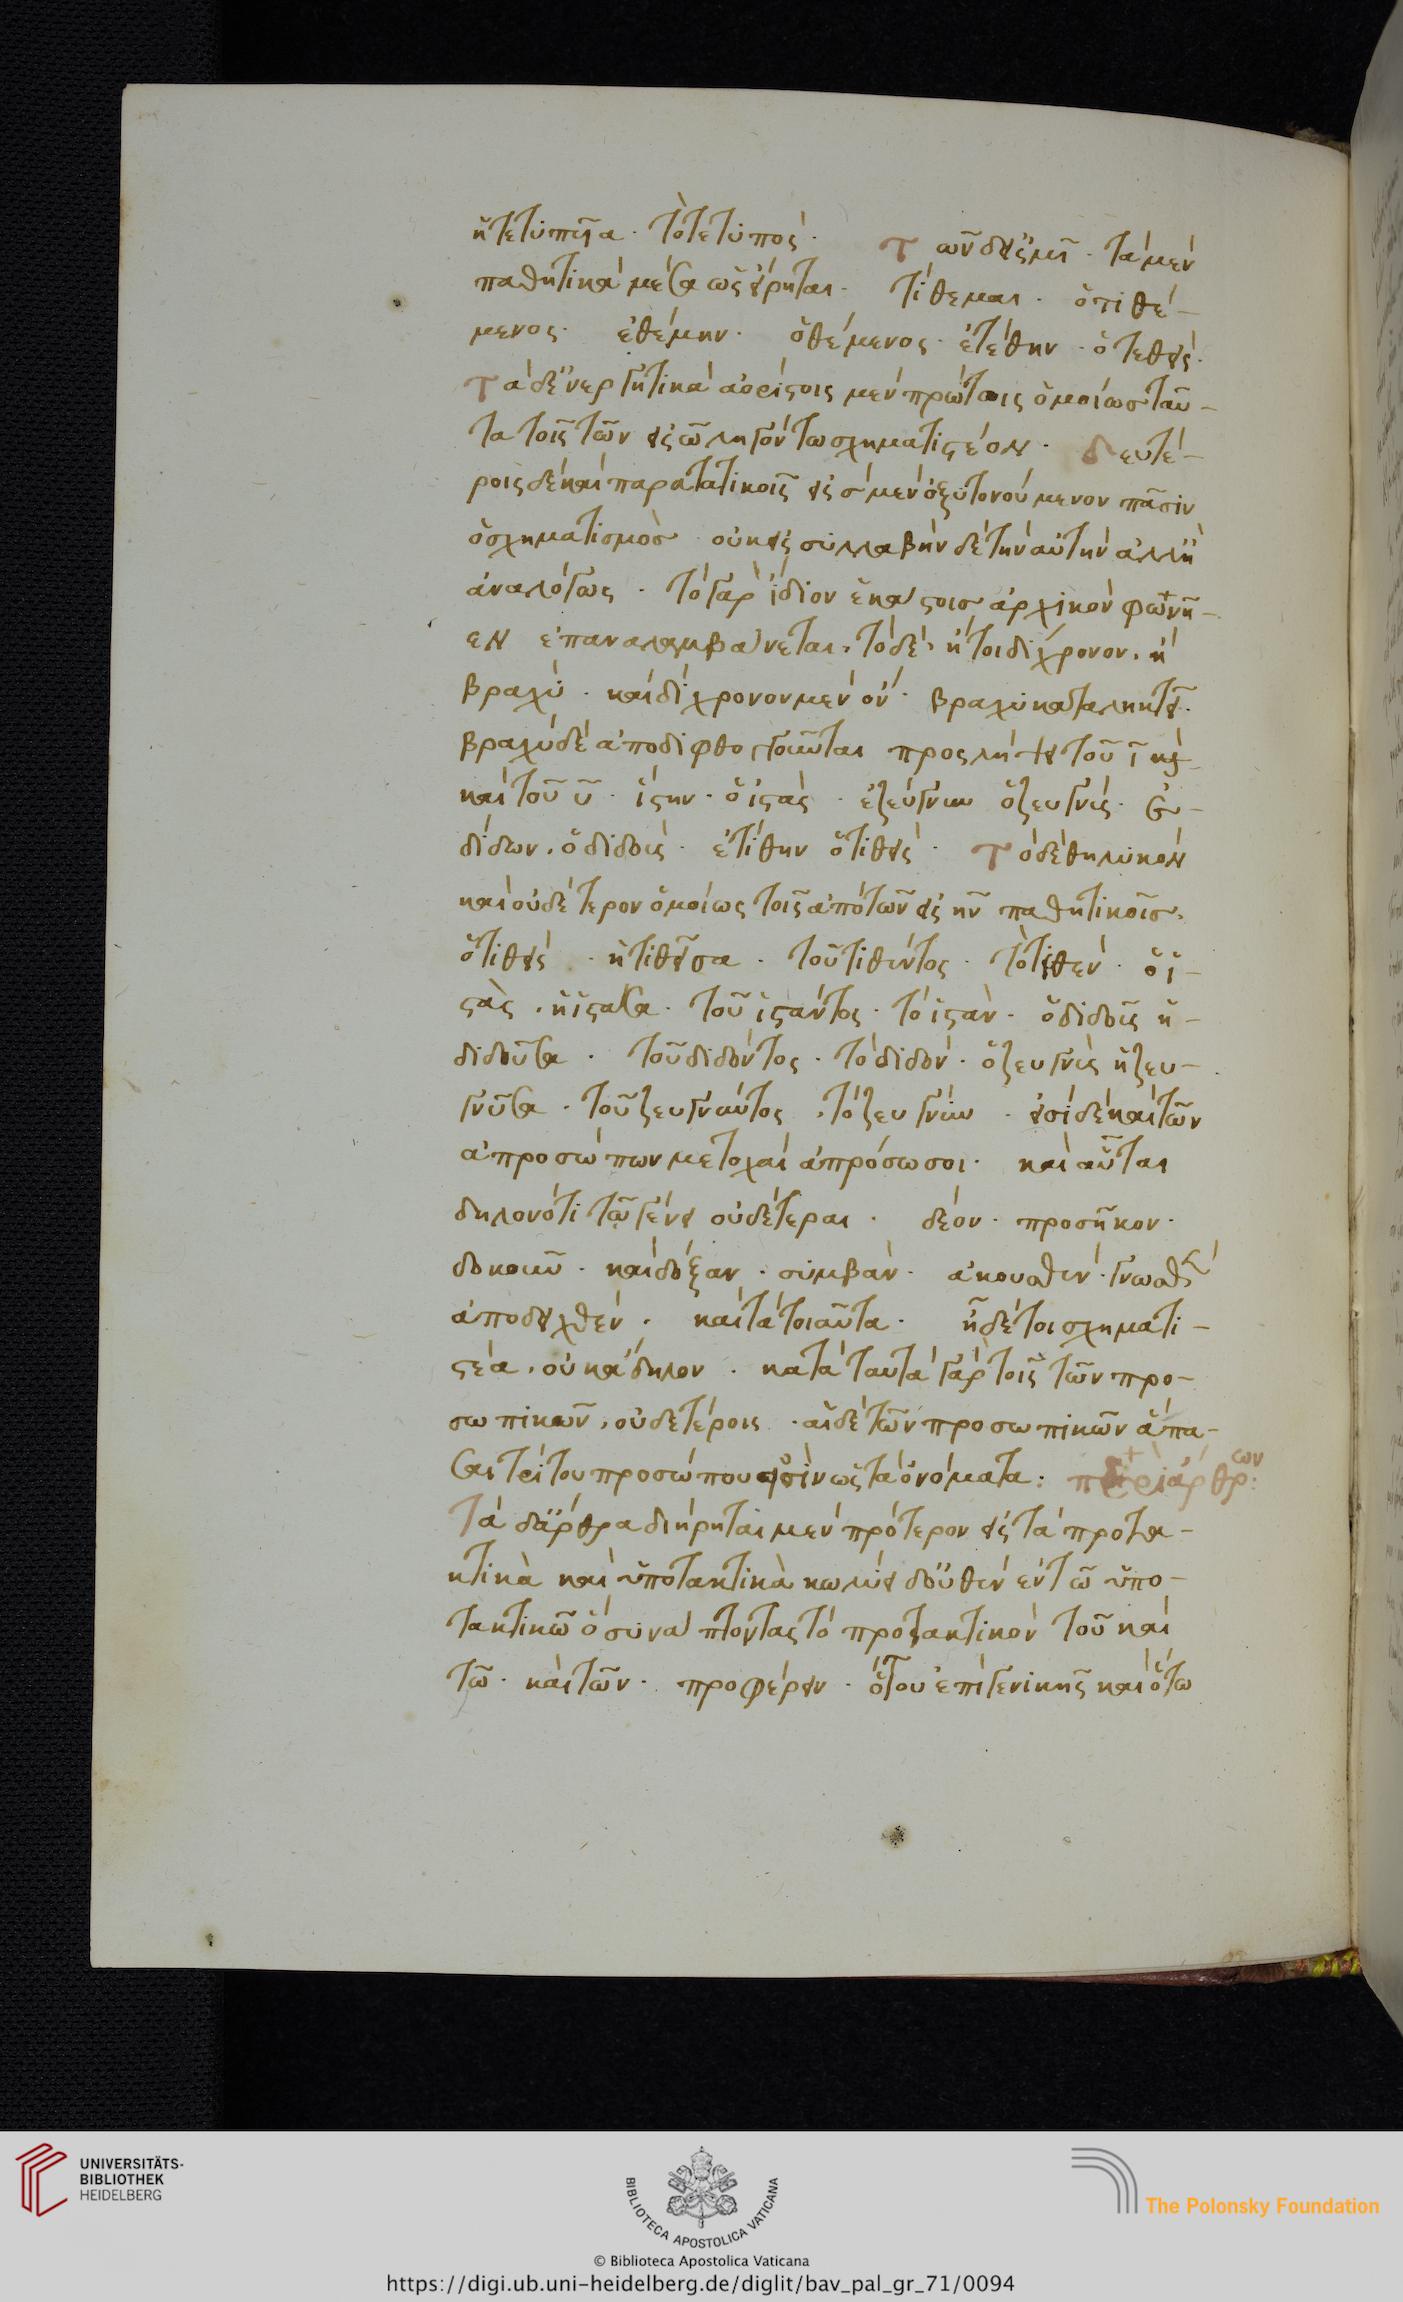 ἡ τετυπυῖα· τὸ τετυπός· τῶν δ' εἰς μῖ· τὰ μὲν
παθητικὰ μέσα ὡς εἴρηται· τίθεμαι· ὁ τιθέ-
μενος· ἐθέμην· ὁ θέμενος· ἐτέθην· ὁ τεθείς·
τὰ δ' ἐνεργητικὰ ἀορίστοις μὲν πρώτοις ὁμοίως ταῦ-
τα τοῖς τῶν εἰς ω ληγόντω σχηματιστέον· δευτέ-
ροις δὲ καὶ παρατατικοῖς εἰς σ μὲν ὀξυτονούμενον πᾶσιν
ὁ σχηματισμὸσ· οὐκ εἰς συλλαβὴν δὲ τὴν αὐτὴν ἀλλ' ἢ
ἀναλόγως· τὸ γὰρ ἴδιον ἑκάστοισ ἀρχικὸν φωνῆ-
εν ἐπαναλαμβάνεται, τὸ δὲ, ἤτοι δίχρονον, ἢ
βραχύ· καὶ δίχρονον μὲν ὂν· βραχυκαταληκτεῖ·
βραχὺ δὲ ἀποδιφθογγοῦται προσλήψει τοῦ ῖ
καὶ τοῦ ῦ· ἵστην· ὁ ἱστάς· ἐζεύγνυν ὁ ζευγνύς· ἐ-
δίδων, ὁ διδούς· ἐτίθην ὁ τιθείς· τὸ δὲ θηλυκὸν
καὶ οὐδέτερον ὁμοίως τοῖς ἀπὸ τῶν εἰς ην παθητικοῖσ,
ὁ τιθείς· ἡ τιθεῖσα· τοῦ τιθέντος· τὸ τιθέν· ὁ ἱ-
στὰς, ἡ ἱστᾶσα· τοῦ ἱστάντος· τὸ ἱστὰν· ὁ διδοὺς ἡ
διδοῦσα· τοῦ διδόντος· τὸ διδόν· ὁ ζευγνὺς ἡ ζευ-
γνῦσα· τοῦ ζευγνύντος, τὸ ζευγνύν· εἰσὶ δὲ καὶ τῶν
ἀπροσώπων μετοχαὶ ἀπρόσωσοι· καὶ αὗται
δηλονότι τῷ γένει οὐδέτεραι· δέον· προσῆκον·
δοκοῦν· καὶ δόξαν· συμβὰν· ἀκουσθὲν· γνωσθὲν
ἀποδειχθέν· καὶ τὰ τοιαῦτα· ᾗ δέ τοι σχηματι-
στέα, οὐκ ἄδηλον· κατὰ ταυτὰ γὰρ τοῖς τῶν προ-
σωπικῶν, οὐδετέροις· αἱ δὲ τῶν προσωπικῶν ἅπα-
σαι τρίτου προσώπου εἰσὶν ὡς τὰ ὀνόματα: περὶ ἄρθρων:
Τὰ δ' ἄρθρα διήρηται μὲν πρότερον εἰς τὰ προτα-
κτικὰ καὶ ὑποτακτικὰ κωλύει δ' οὐθὲν ἐν τῶ ὑπο-
τακτικῶ ὁ συνάπτοντας τὸ προτακτικὸν τοῦ καὶ
τῶ· καὶ τῶν· προφέρειν· ὅτου ἐπὶ γενικῆς καὶ ὅτω
UNIVERSITÄTS-
BIBLIOTHEK
HEIDELBERG
BIBLIOTECA APOSTOLICA VATICANA
The Polonsky Foundation
© Biblioteca Apostolica Vaticana
https://digi.ub.uni-heidelberg.de/diglit/bav_pal_gr_71/0094